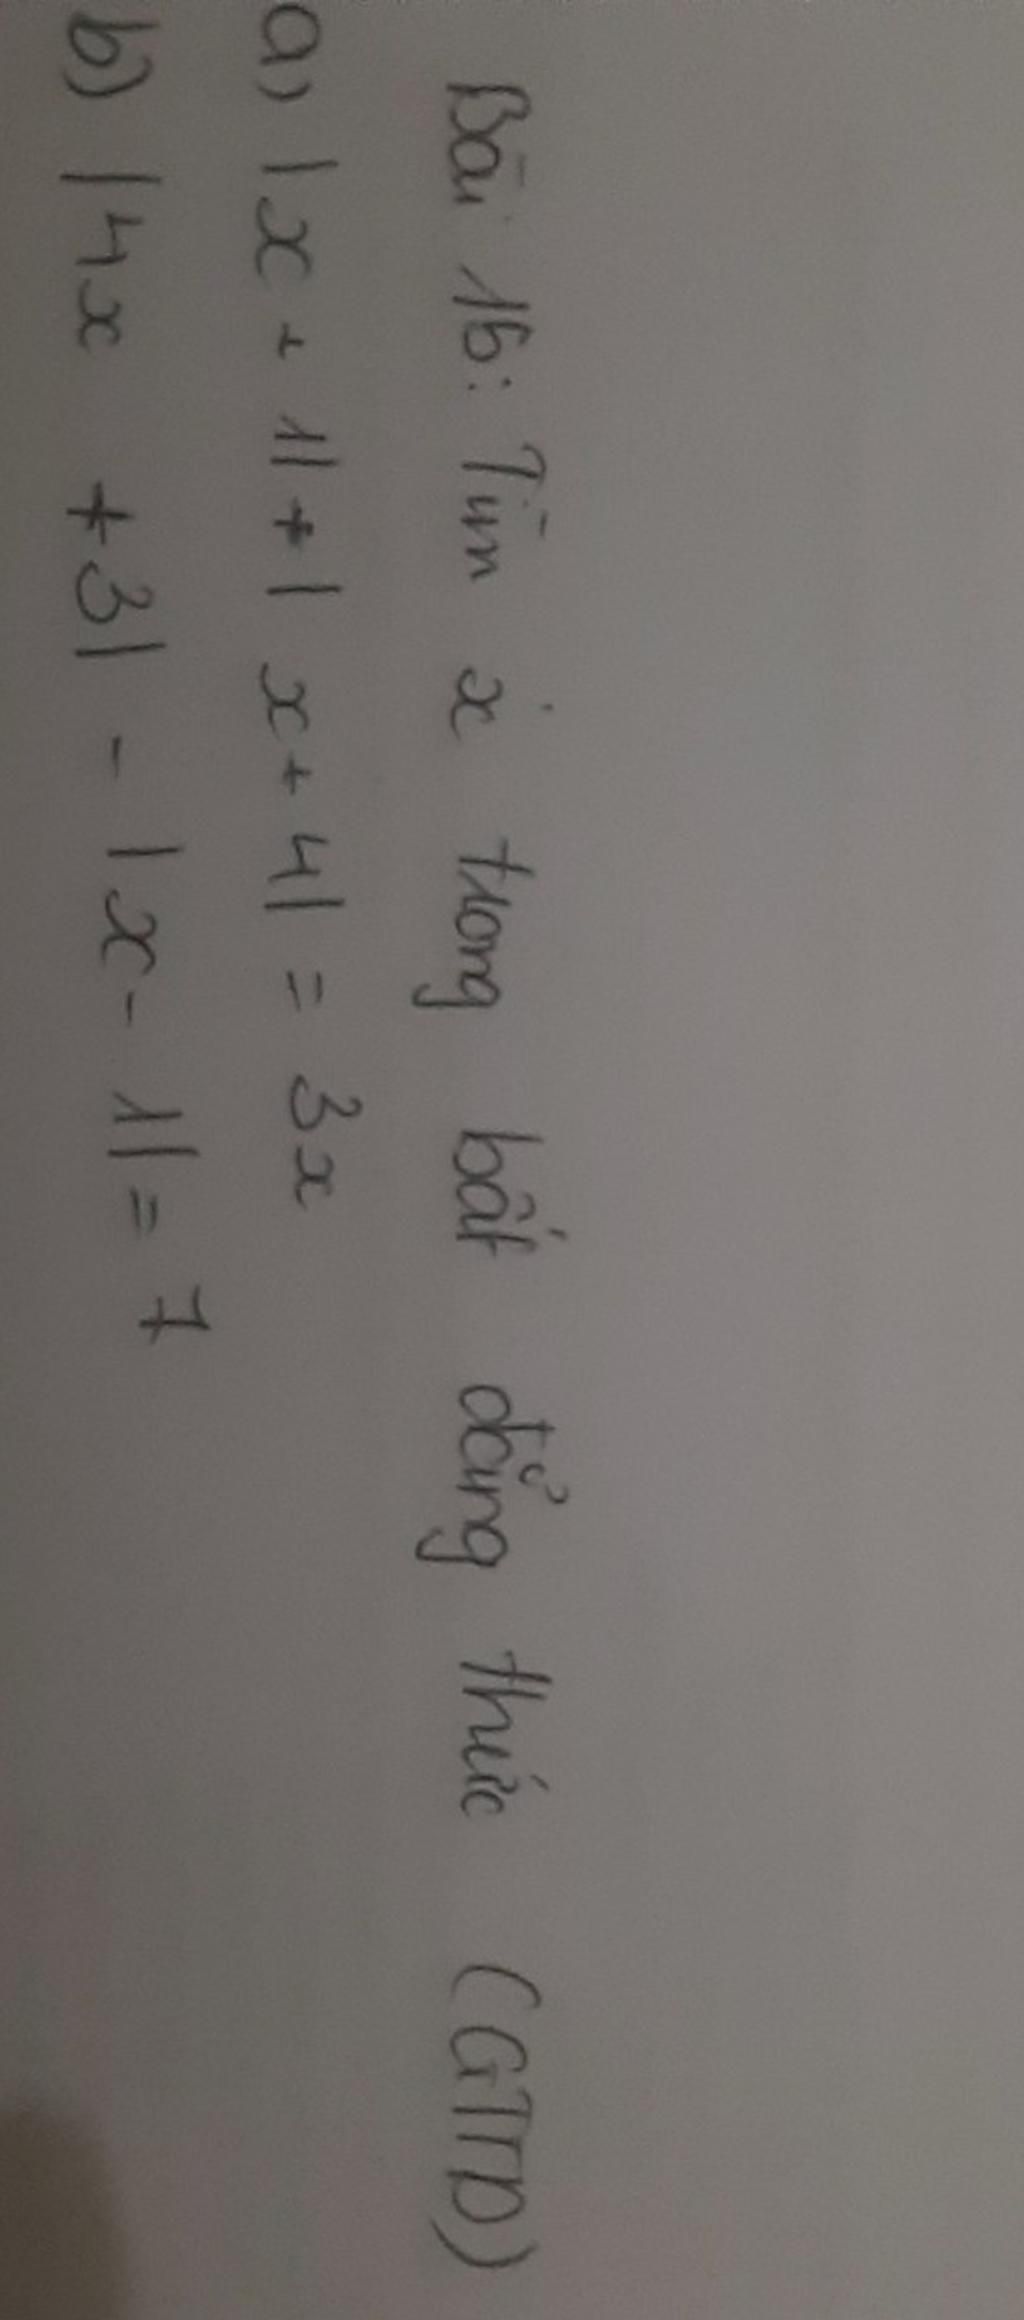 Bài 16: Tìm x trong bất đẳng thức (GTTD)
a) |x + 1| + | x + 4| = 3x
b) |4x + 3| - |x - 1| = 7